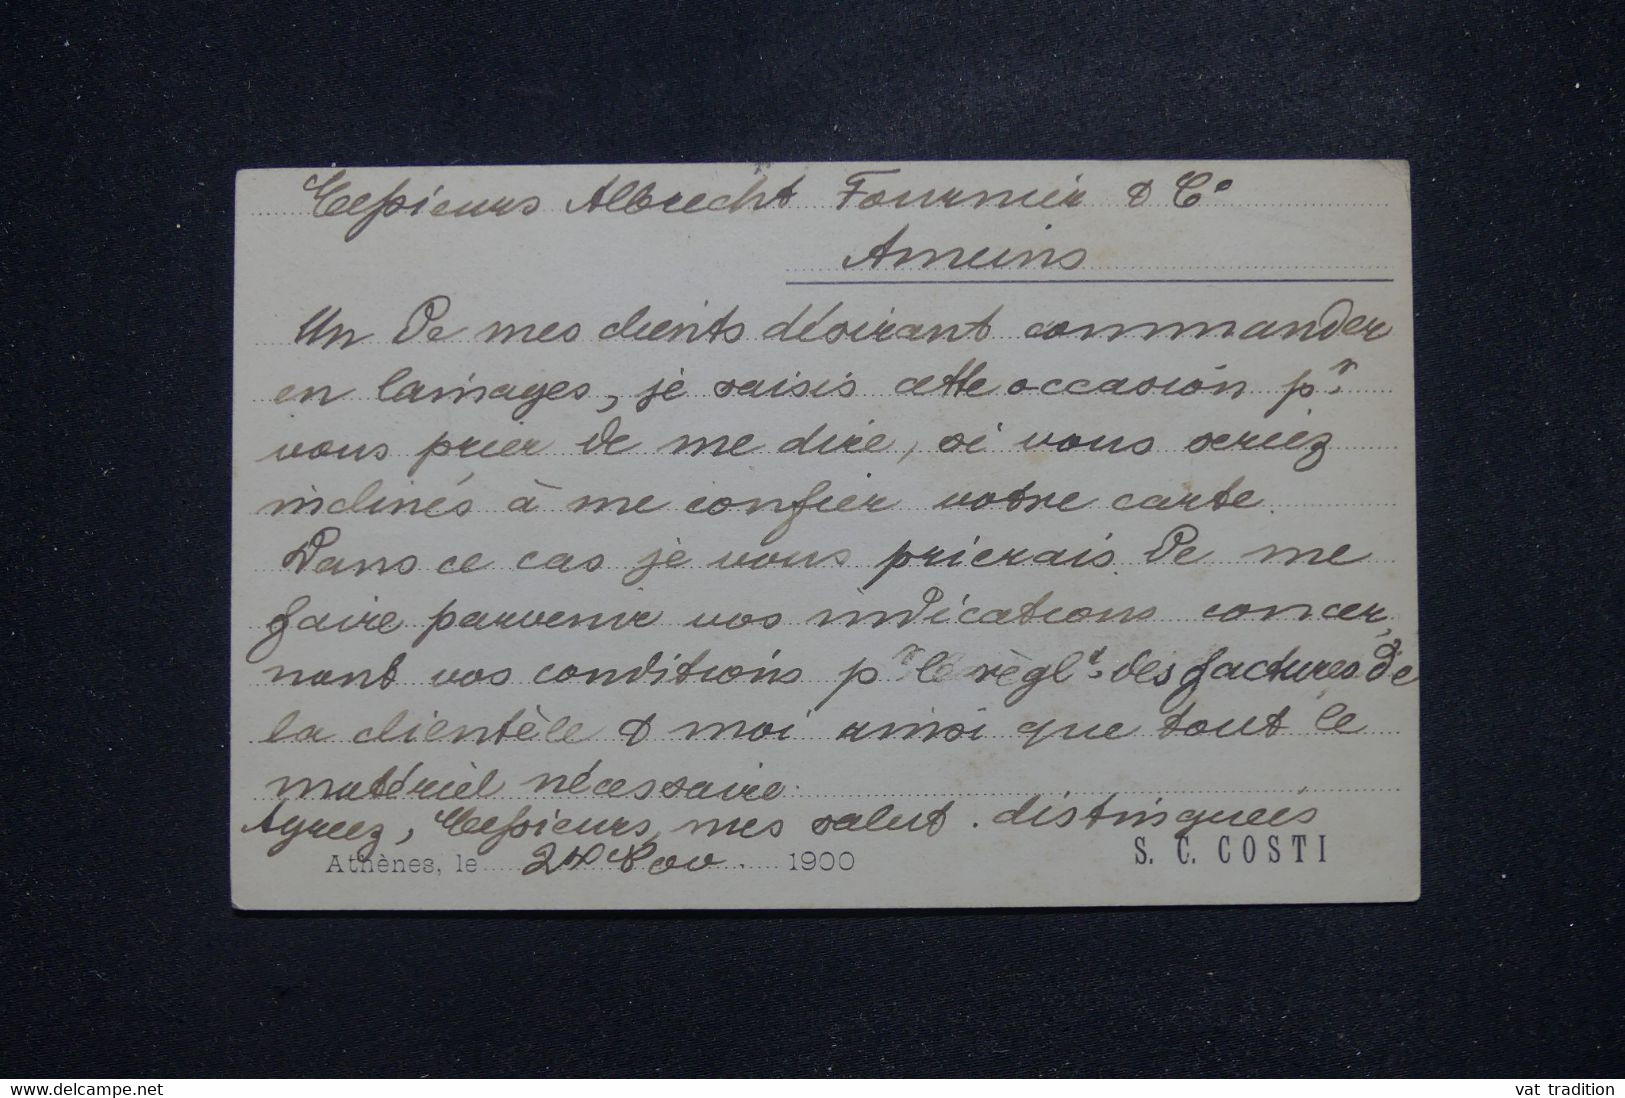 Messieurs Albrecht Fournier & Cº
Amiens
Un de mes clients désirant commander
en lainages, je saisis cette occasion pr
vous prier de me dire, si vous seriez
inclinés à me confier votre carte.
Dans ce cas je vous prierais de me
faire parvenir vos indications concer
nant vos conditions pr le règlt des factures de
la clientèle & moi ainsi que tout le
matériel nécessaire.
Agréez, Messieurs, mes salut. distingués
Athènes, le 24 Nov. 1900
S. C. COSTI
www.delcampe.net
vat tradition